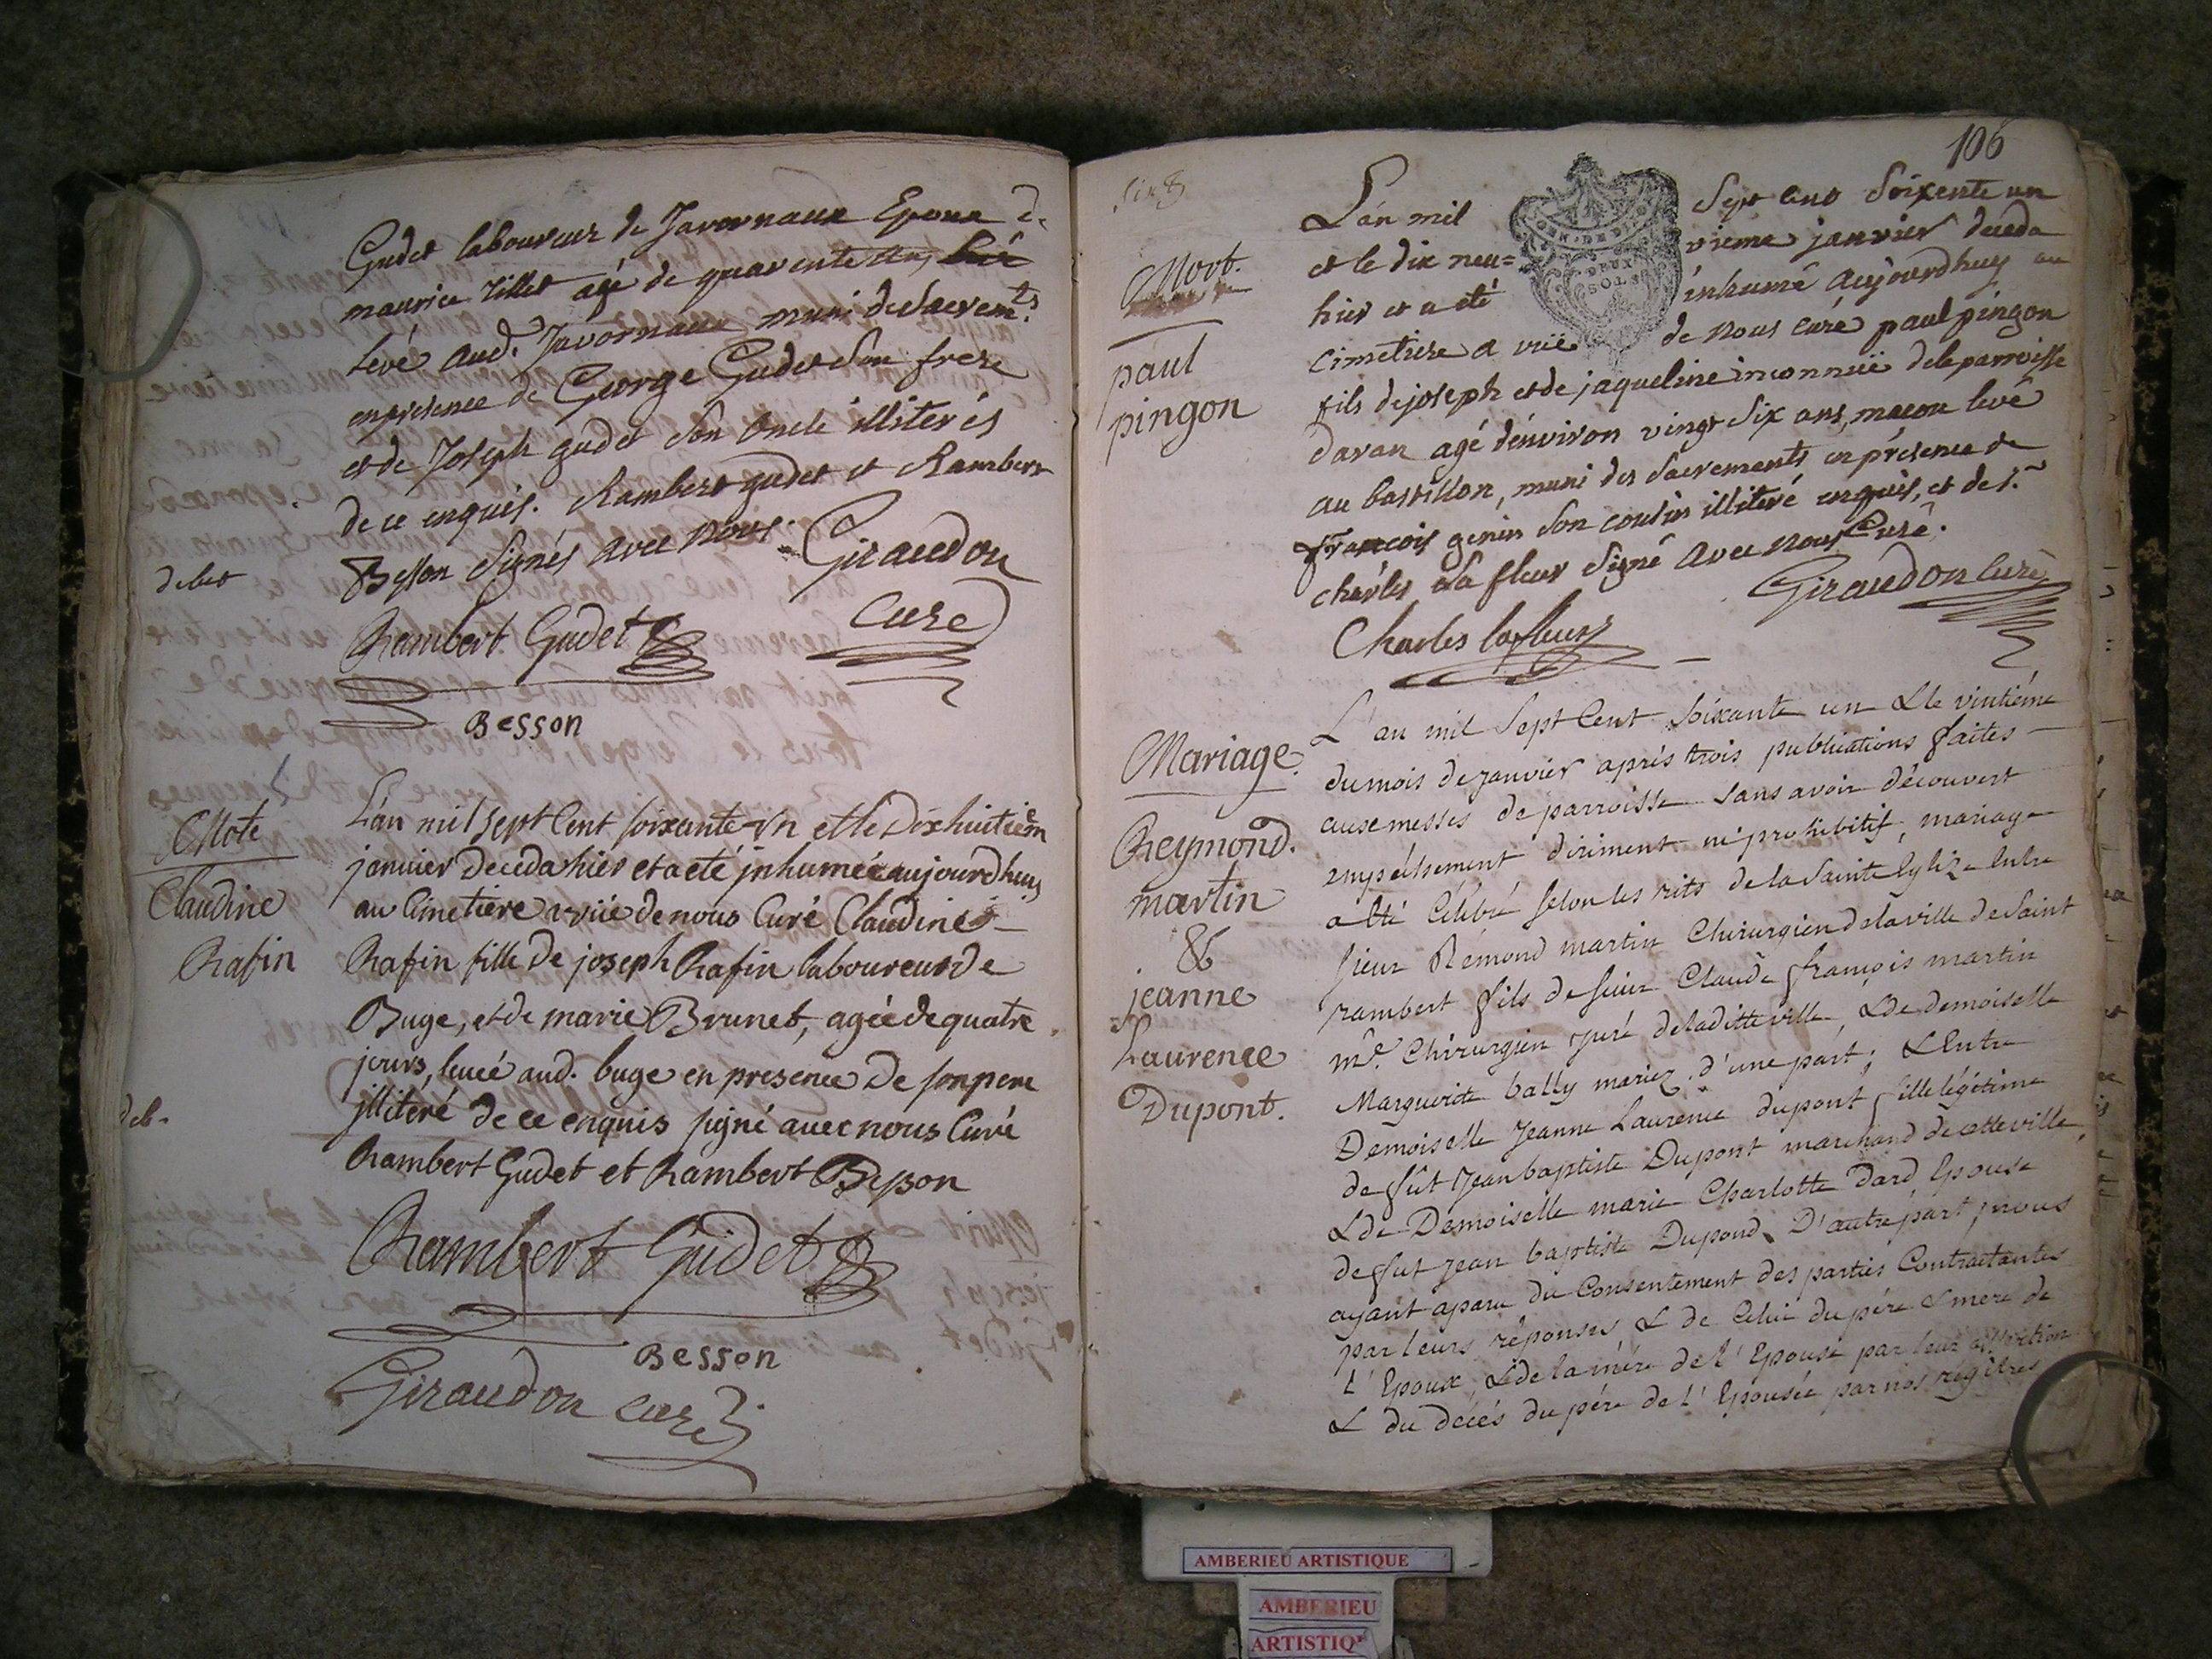 Gudet laboureur de Javornaux Epoux de
maurice tillet agé de quarente ans,
levé aud. Javornaux muni des sacremts
en presence de George Gudet son frere
et de Joseph gudet son oncle illiterés
de ce enquis. Rambert gudet et Rambert
debet
Besson signés avec nous. Giraudon
Curé
Rambert Gudet
Besson
Morte
Claudine
Rafin
L'an mil sept cent soixante-un et le dix huitiem
janvier deceda hier et a eté jnhumée aujourdhuy
au Cimetiere a vrié de nous Curé Claudine
Rafin fille de joseph Rafin laboureur de
Buge, et de marie Brunet, agée de quatre
jours, levée aud. buge en presence de son pere
deb.
jlliteré de ce enquis signé avec nous Curé
Rambert Gudet et Rambert Besson
Rambert Gudet
Besson
Giraudon curé
106
GEN. DE
DEUX
SOLS
Mort.
paul
pingon
L'an mil sept cent soixente un
et le dix neu= vieme janvier deceda
hier et a eté inhumé aujourdhuy au
cimetiere a vrié de nous curé paul pingon
fils de joseph et de jaqueline inconnüe de la parroisse
davan agé d'environ vingt six ans, macon levé
au bastillon, muni des sacrements en présence de
francois genin son cousin illiteré enquis, et de sr.
charles la fleur signé avec nous Curé.
Giraudon curé
Charles lafleur
Mariage.
Reymond.
martin
&
jeanne
Laurence
Dupont.
L'an mil sept Cent soixante un & le vintiéme
du mois de janvier aprés trois publications faites
aux messes de parroisse sans avoir découvert
empéchement diriment ni prohibitif, mariage
a été Célébré selon les rits de la Sainte Eglize entre
sieur Rémond martin Chirurgien de la ville de Saint
rambert fils de sieur Claude françois martin
me. Chirurgien juré de la ditte ville, & de demoiselle
Marguerite bally mariez d'une part; & Entre
Demoiselle Jeanne Laurence dupont fille légitime
de fût Jean baptiste Dupont marchand de cette ville,
& de Demoiselle marie Charlotte Dard Epouse
de fut Jean baptiste Dupond, D'autre part, nous
ayant aparu du Consentement des parties Contractantes
par leurs réponses, & de Celui du pére & mere de
l'Epoux, & de la mére de l'Epouse par leur
& du décés du pére de l'Epousée par nos régîtres
AMBERIEU ARTISTIQUE
AMBERIEU
ARTISTIQ